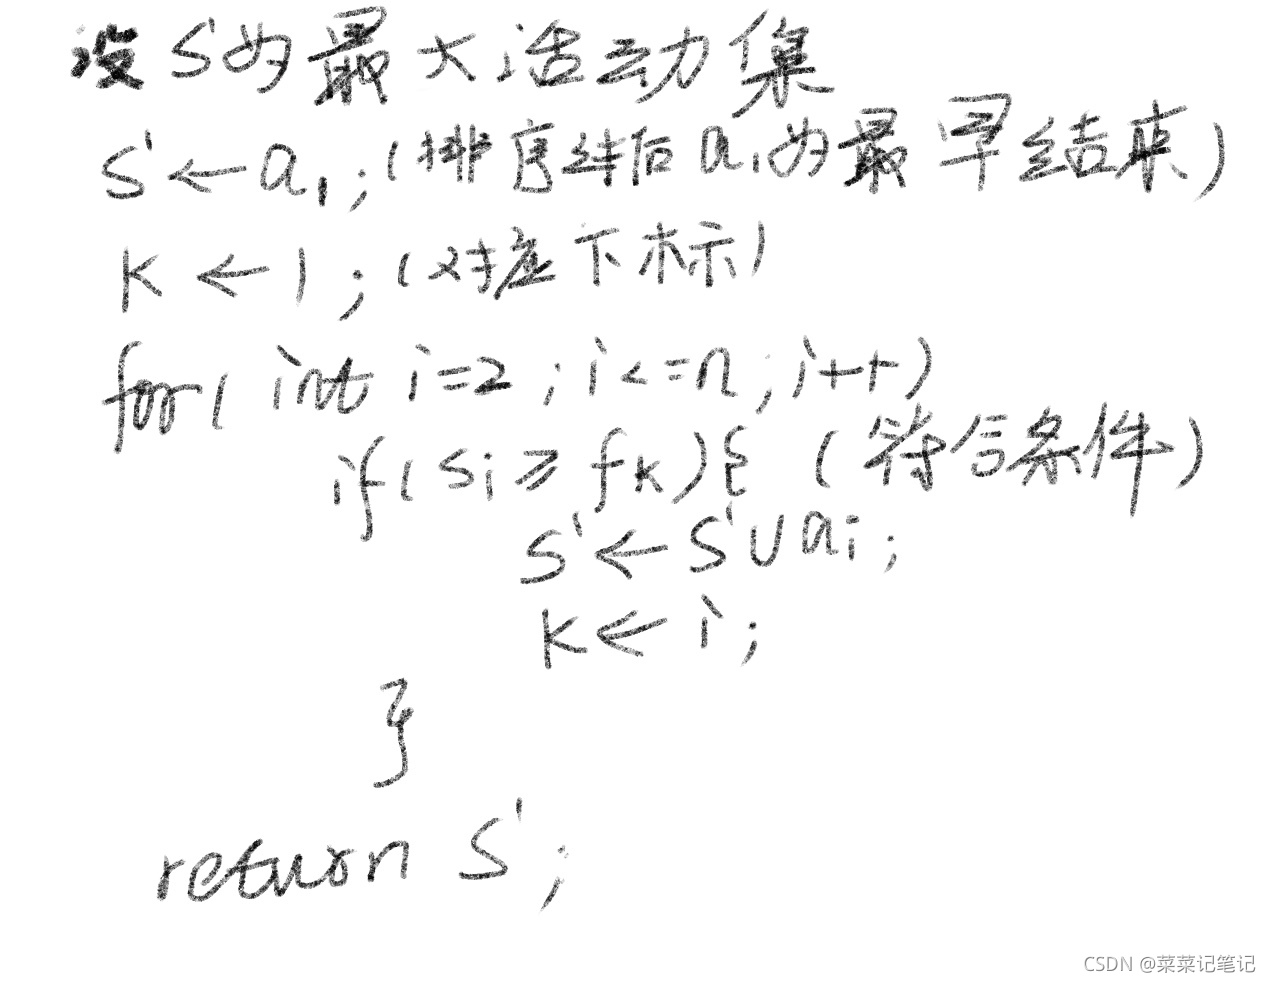 设S'为最大活动集
S'←a₁;(排序ёл后a₁为最早结束)
K←1;(对应下标)
for(int i=2;i<=n;i++)
if(Si≥fK){ (符合条件)
S'←S'∪ai;
K←i;
}
return S';
CSDN @菜菜记笔记